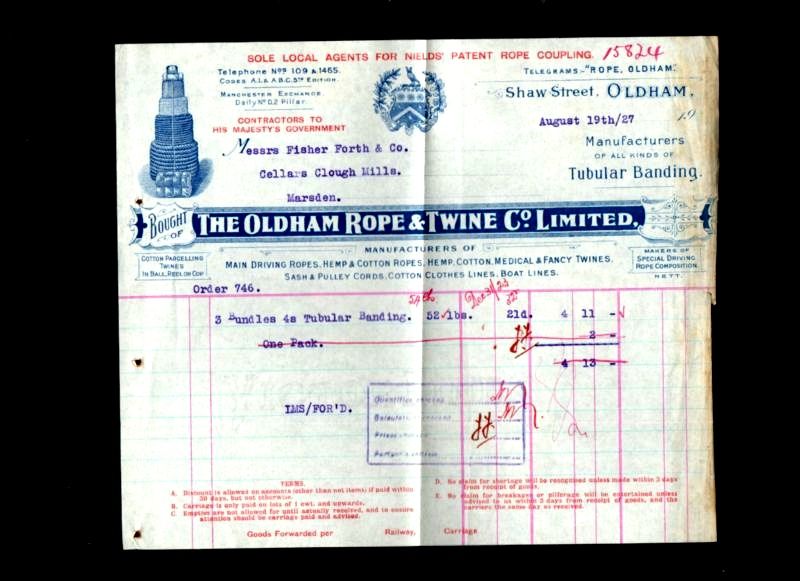 SOLE LOCAL AGENTS FOR NIELDS' PATENT ROPE COUPLING. 15824
Telephone Nos 109 & 1465.
Codes A.I. & A.B.C. 5TH Edition.
Manchester Exchange
Daily No D.2 Pillar.
TELEGRAMS:- "ROPE, OLDHAM."
Shaw Street, OLDHAM,
CONTRACTORS TO
HIS MAJESTY'S GOVERNMENT
August 19th/27
Messrs Fisher Forth & Co.
Cellars Clough Mills.
Marsden.
Manufacturers
OF ALL KINDS OF
Tubular Banding.
BOUGHT OF
THE OLDHAM ROPE & TWINE CO LIMITED.
COTTON PARCELLING
TWINES
IN BALL, REEL OR COP
MANUFACTURERS OF
MAIN DRIVING ROPES, HEMP & COTTON ROPES, HEMP, COTTON, MEDICAL & FANCY TWINES,
SASH & PULLEY CORDS, COTTON CLOTHES LINES, BOAT LINES.
MAKERS OF
SPECIAL DRIVING
ROPE COMPOSITION.
NETT.
Order 746.
3 Bundles 4s Tubular Banding. 52 lbs. 21d. 4 11 -
One Pack. 2 -
4 13 -
IMS/FOR'D.
TERMS.
A. Discount is allowed on accounts (other than not items) if paid within
30 days, but not otherwise.
B. Carriage is only paid on lots of 1 cwt. and upwards.
C. Empties are not allowed for until actually received, and to ensure
attention should be carriage paid and advised.
D. No claim for shortage will be recognised unless made within 3 days
from receipt of goods.
E. No claim for breakages or pilferage will be entertained unless
advised to us within 3 days from receipt of goods, and the
carriers the same day as received.
Goods Forwarded per Railway, Carriage